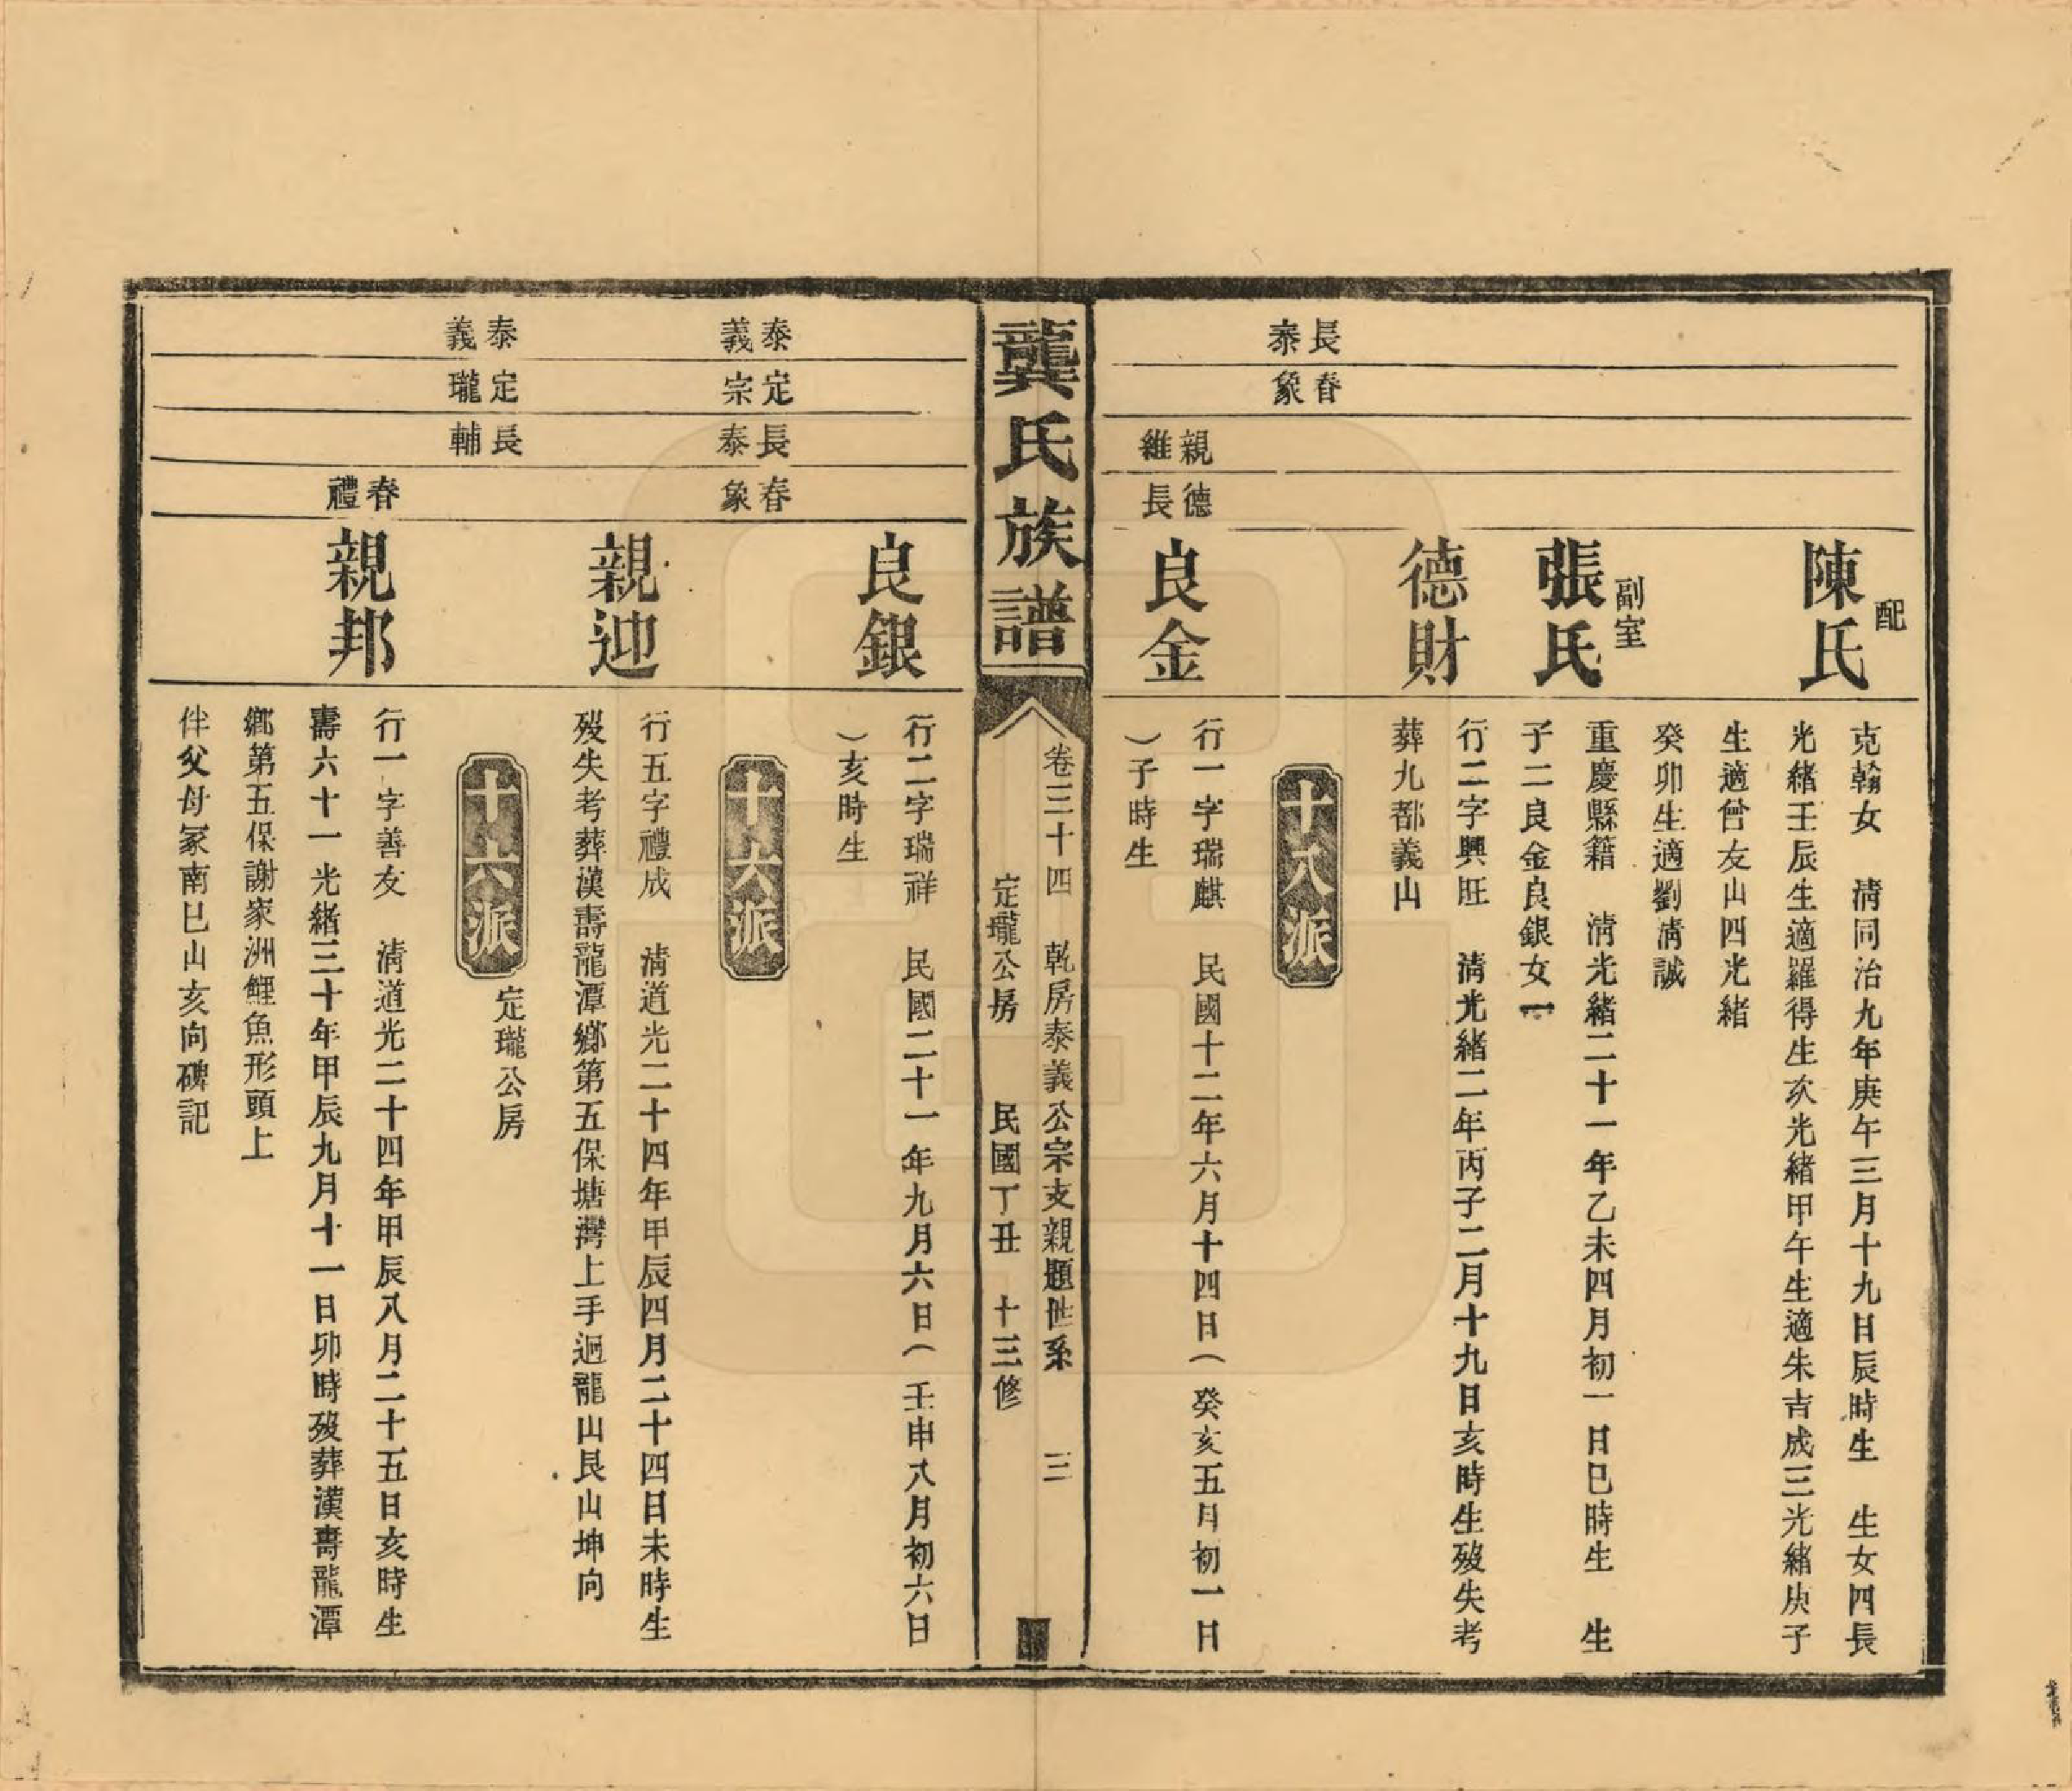 長泰
春象
配
陳氏
克翰女　清同治九年庚午三月十九日辰時生　生女四長
光緒壬辰生適羅得生次光緒甲午生適朱吉成三光緒庚子
生適曾友山四光緒
癸卯生適劉清誠
副室
張氏
重慶縣籍　清光緒二十一年乙未四月初一日巳時生　生
子二良金良銀女一
德財
行二字興旺　清光緒二年丙子二月十九日亥時生歿失考
葬九都義山
十八派
親維
德長
良金
行一字瑞麒　民國十二年六月十四日（癸亥五月初一日
）子時生
龔氏族譜
卷三十四　乾房泰義公宗支親題世系　三
定瓏公房　民國丁丑　十三修
良銀
行二字瑞祥　民國二十一年九月六日（壬申八月初六日
）亥時生
十六派
泰義
定宗
長泰
春象
親迎
行五字禮成　清道光二十四年甲辰四月二十四日未時生
歿失考葬漢壽龍潭鄉第五保塘灣上手迴龍山艮山坤向
十六派
定瓏公房
泰義
定瓏
長輔
春禮
親邦
行一字善友　清道光二十四年甲辰八月二十五日亥時生
壽六十一光緒三十年甲辰九月十一日卯時歿葬漢壽龍潭
鄉第五保謝家洲鯉魚形頭上
伴父母冢南巳山亥向碑記